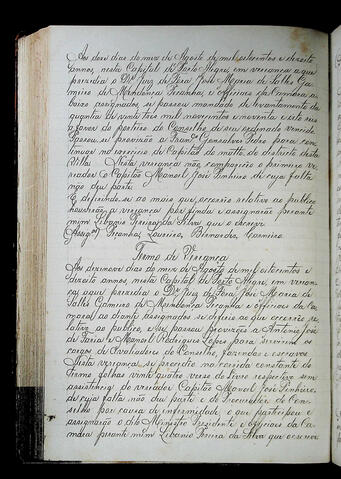 Aos doze dias do mez de Agosto de mil oitocentos e dezoito
annos, nesta Capital de Porto Alegre em vereança a que
presidia o Dr. Juiz de Fóra José Maria de Salles Ga-
meiro de Mendonça Peçanha, e officiaes da Camara a-
baixo assignados, se passou mandado de levantamento da
quantia de vinte tres mil novecentos e noventa e sete reis
a favor do porteiro do Conselho, de seu ordenado vencido
Passou-se provisão a Franco Gonsalves Pedro para con-
no exercicio de Capitão do matto do districto desta
Villa. Nesta vereança não compareceo o primeiro ve-
reador o Capitão Manoel José Pinheiro de cuja falta
não deu parte
E deferindo-se ao mais que occorrêo relativo ao publico
houverão a vereança por finda e assignarão perante
mim Libanio Pereira da Silva que o escrevy
Peçanha, Loureiro, Bernardes, Carneiro.
Termo de Vereança
Aos dezenove dias do mez de Agosto de mil oitocentos e
dezoito annos, nesta Capital de Porto Alegre, em verean-
ça aque presidio o Dr. Juiz de Fóra José Maria de
Salles Gameiro de Mendonça Peçanha e officiaes da Ca-
mara ao diante assignados se deferio ao que occorrêo re-
lativo ao publico, e se passou provizões a Antonio José
de Faria e Manoel Rodrigues Lopes para servirem os
cargos de Avaliadores do Conselho, fazendas e escravos
Nesta vereança, se procedeo na corrida constante do
termo a folhas vinte quatro verso do livro respectivo sem
assistencia do vereador Capitão Manoel José Pinheiro,
de cuja falta não deu parte e do Procurador do Con-
selho por causa de infermidade, o que participou e
assignarão o dito Ministro Presidente e officiaes da Ca-
mara perante mim Libanio Pereira da Silva que o escrevy